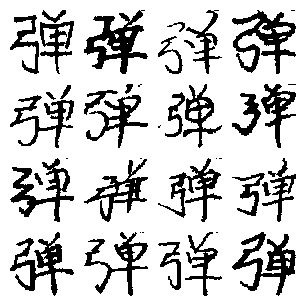 弹弹弹弹
弹弹弹弹
弹弹弹弹
弹弹弹弹